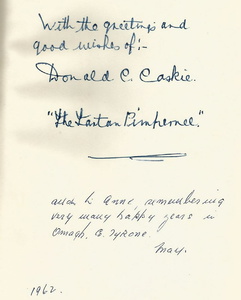 With the greetings and
good wishes of:-
Donald C. Caskie.
"The Tartan Pimpernel."
and to Anne, remembering
very many happy years in
Omagh, Co. Tyrone.
May.
1962.